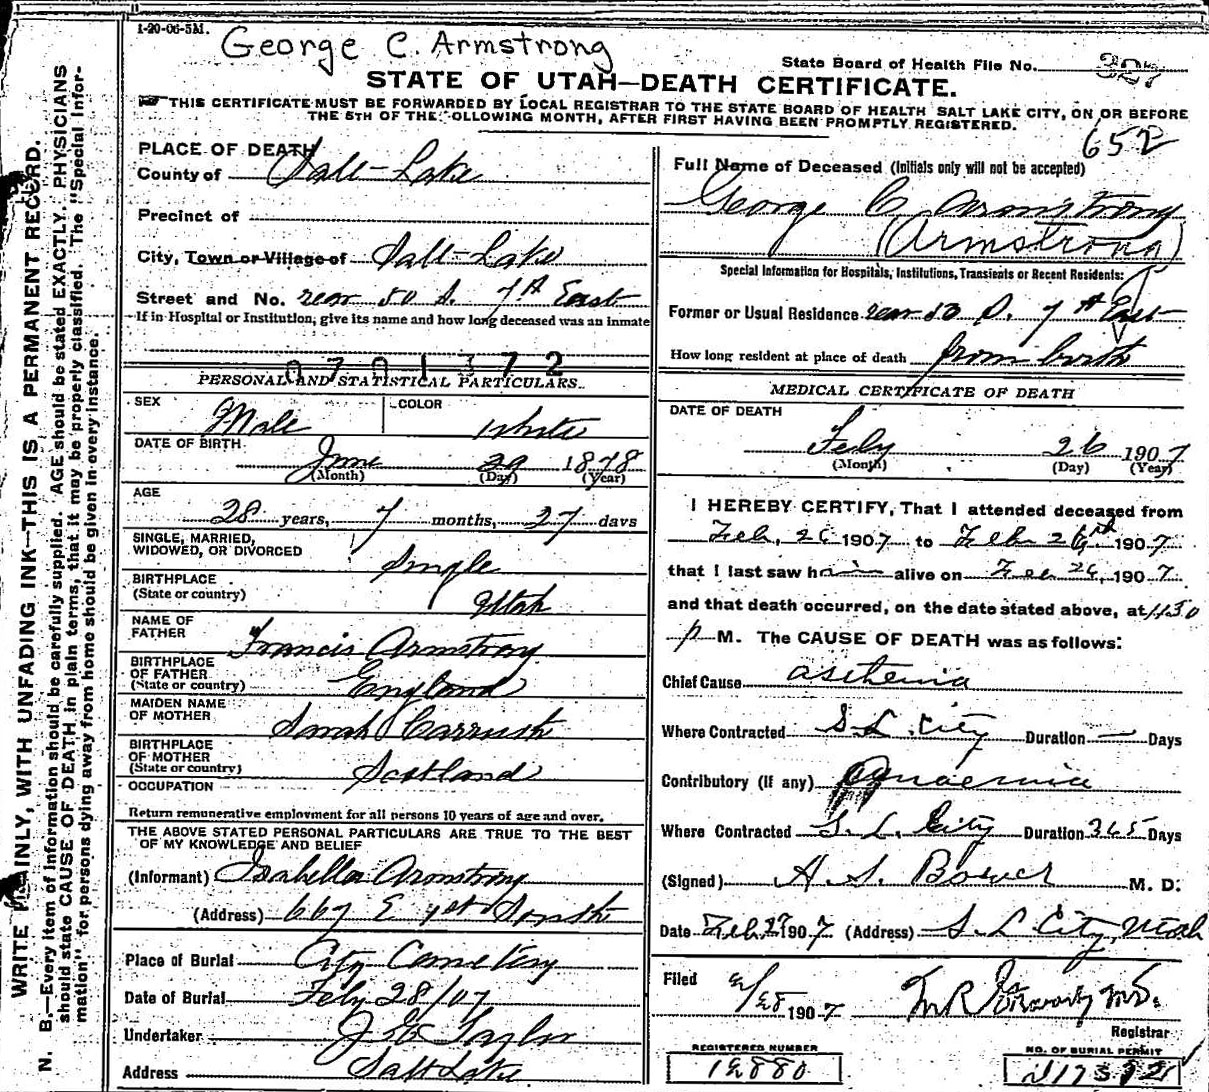 1-20-06-5M.
George C. Armstrong
State Board of Health File No. 327
STATE OF UTAH—DEATH CERTIFICATE.
THIS CERTIFICATE MUST BE FORWARDED BY LOCAL REGISTRAR TO THE STATE BOARD OF HEALTH SALT LAKE CITY, ON OR BEFORE
THE 5TH OF THE FOLLOWING MONTH, AFTER FIRST HAVING BEEN PROMPTLY REGISTERED.
652
WRITE PLAINLY, WITH UNFADING INK—THIS IS A PERMANENT RECORD.
N. B.—Every item of information should be carefully supplied. AGE should be stated EXACTLY. PHYSICIANS
should state CAUSE OF DEATH in plain terms, that it may be properly classified. The "Special Infor-
mation" for persons dying away from home should be given in every instance.
PLACE OF DEATH
County of Salt-Lake
Precinct of
City, Town or Village of Salt-Lake
Street and No. rear 50 S. 7th East
If in Hospital or Institution, give its name and how long deceased was an inmate
0701372
PERSONAL AND STATISTICAL PARTICULARS.
SEX Male COLOR white
DATE OF BIRTH
June 29 1878
(Month) (Day) (Year)
AGE
28 years, 7 months, 27 days
SINGLE, MARRIED,
WIDOWED, OR DIVORCED Single
BIRTHPLACE
(State or country) Utah
NAME OF
FATHER Francis Armstrong
BIRTHPLACE
OF FATHER
(State or country) England
MAIDEN NAME
OF MOTHER Sarah
BIRTHPLACE
OF MOTHER
(State or country) Scotland
OCCUPATION
Return remunerative employment for all persons 10 years of age and over.
THE ABOVE STATED PERSONAL PARTICULARS ARE TRUE TO THE BEST
OF MY KNOWLEDGE AND BELIEF
(Informant) Isabella Armstrong
(Address) 667 E 1st South
Place of Burial City Cemetery
Date of Burial Feby 28/07
Undertaker Taylor
Address Salt Lake
Full Name of Deceased (Initials only will not be accepted)
George C Armstrong
(Armstrong)
Special Information for Hospitals, Institutions, Transients or Recent Residents:
Former or Usual Residence rear 50 S. 7th East
How long resident at place of death from birth
MEDICAL CERTIFICATE OF DEATH
DATE OF DEATH
Feby 26 1907
(Month) (Day) (Year)
I HEREBY CERTIFY, That I attended deceased from
Feb. 26 1907 to Feb 26 1907
that I last saw him alive on Feb 26, 1907.
and that death occurred, on the date stated above, at 1130
p M. The CAUSE OF DEATH was as follows:
Chief Cause asthenia
Where Contracted S. L. City Duration — Days
Contributory (if any) Anaemia
Where Contracted S. L. City Duration 365 Days
(Signed) H. S. M. D.
Date Feb. 27 1907 (Address) S L City, Utah
Filed 2/28 1907 M.D.
Registrar
REGISTERED NUMBER
12880
NO. OF BURIAL PERMIT